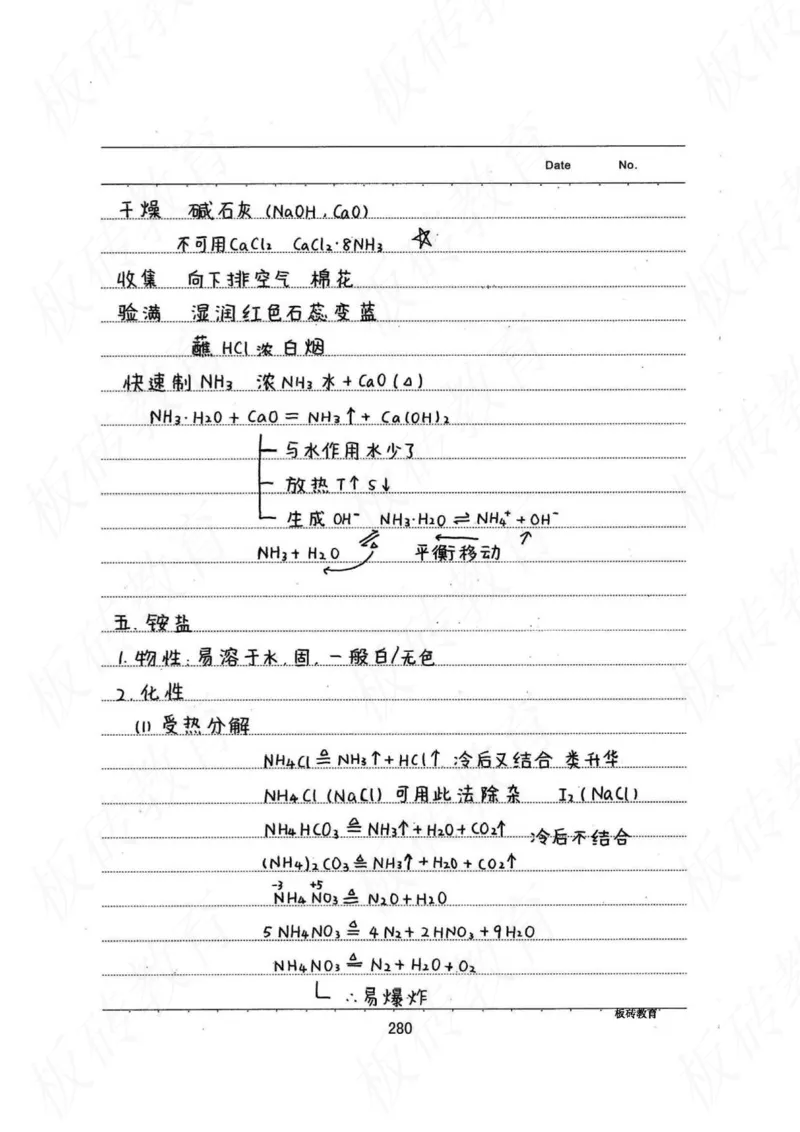 Date No.
干燥 碱石灰 (NaOH, CaO)
不可用CaCl₂ CaCl₂·8NH₃ ☆
收集 向下排空气 棉花
验满 湿润红色石蕊变蓝
蘸 HCl 浓 白烟
快速制 NH₃ 浓NH₃水 + CaO (△)
NH₃·H₂O + CaO = NH₃↑ + Ca(OH)₂
与水作用水少了
放热 T↑ S↓
生成 OH⁻ NH₃·H₂O ⇌ NH₄⁺ + OH⁻
NH₃ + H₂O ⇌ △ 平衡移动
五. 铵盐
1. 物性: 易溶于水. 固. 一般白/无色
2. 化性
(1) 受热分解
NH₄Cl ≜ NH₃↑ + HCl↑ 冷后又结合 类升华
NH₄Cl (NaCl) 可用此法除杂 I₂ (NaCl)
NH₄HCO₃ ≜ NH₃↑ + H₂O + CO₂↑ 冷后不结合
(NH₄)₂CO₃ ≜ NH₃↑ + H₂O + CO₂↑
-3 +5
NH₄NO₃ ≜ N₂O + H₂O
5NH₄NO₃ ≜ 4N₂ + 2HNO₃ + 9H₂O
NH₄NO₃ ≜ N₂ + H₂O + O₂
∴易爆炸
板砖教育
280